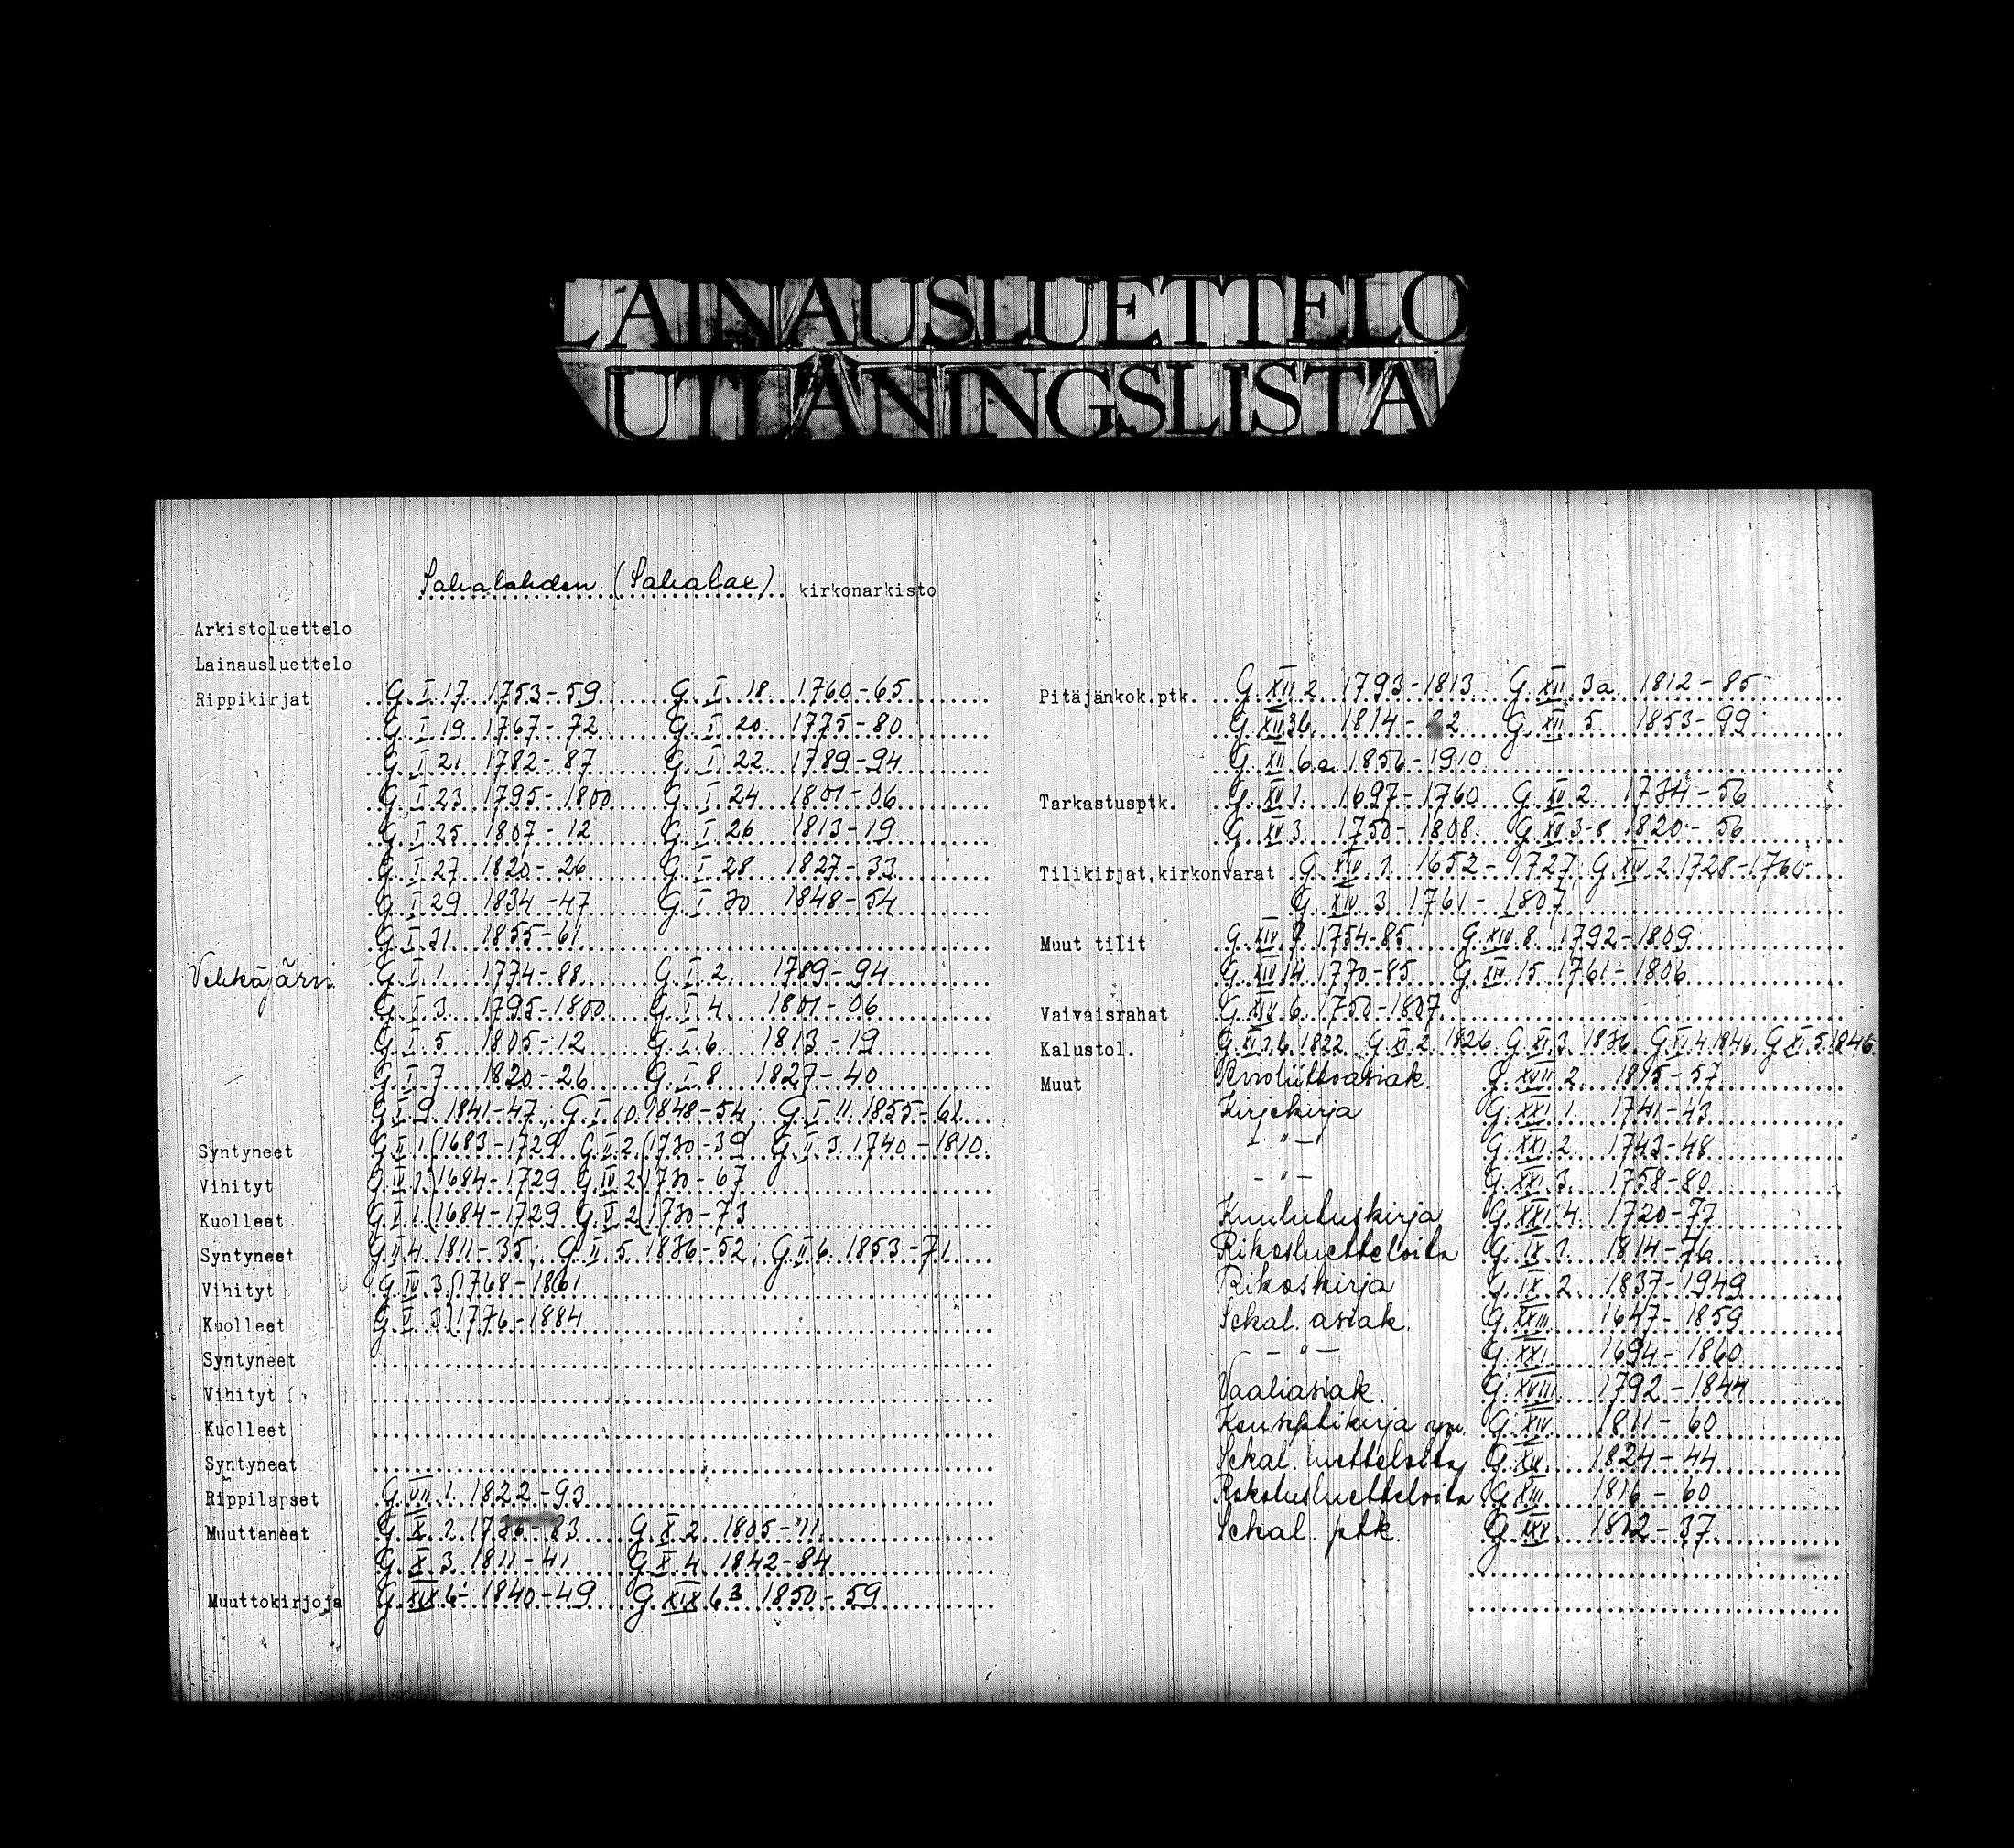 LAINAUSLUETTELO
UTLÅNINGSLISTA
Sahalahden (Sahalax) kirkonarkisto
Arkistoluettelo
Lainausluettelo
Rippikirjat G.I.17. 1753-59 G.I.18 1760-65
G.I.19 1767-72 G.I.20 1775-80
G.I.21 1782-87 G.I.22 1789-94
G.I.23 1795-1800 G.I.24 1801-06
G.I.25 1807-12 G.I.26 1813-19
G.I.27 1820-26 G.I.28 1827-33
G.I.29 1834-47 G.I.30 1848-54
G.I.31 1855-61
Vehkajärvi G.I.1. 1774-88 G.I.2. 1789-94
G.I.3. 1795-1800 G.I.4. 1801-06
G.I.5 1805-12 G.I.6 1813-19
G.I.7 1820-26 G.I.8 1827-40
G.I.9. 1841-47; G.I.10. 1848-54; G.I.11. 1855-61.
Syntyneet G.II.1.(1683-1729 G.II.2.(1730-39 G.II.3. 1740-1810.
Vihityt G.IV.1.)1684-1729 G.IV.2.(1730-67
Kuolleet G.V.1.(1684-1729 G.V.2(1730-73
Syntyneet G.II.4. 1811-35; G.II.5. 1836-52; G.II.6. 1853-71
Vihityt G.IV.3.(1768-1861
Kuolleet G.V.3.)1776-1884
Syntyneet
Vihityt
Kuolleet
Syntyneet
Rippilapset G.VII.1. 1822-93
Muuttaneet G.X.1. G.X.2. 1805-11
G.X.3. 1811-41 G.X.4. 1842-84
Muuttokirjoja G.XIX 1840-49 G.XIX 1850-59
Pitäjänkok.ptk. G.XII.2. 1793-1813 G.XII.3a. 1812-85
G.XII.3b. 1814- G.XII.5 1853-99
G.XII.6.a. 1856-1910
Tarkastusptk. G.XV.1. 1697-1760 G.XV.2. 1734-56
G.XV.3. 1750-1808. G.XV.3-8 1820-56
Tilikirjat,kirkonvarat G.XIV.1. 1652-1727; G.XIV.2. 1728-1760.
G.XIV.3. 1761-1807
Muut tilit G.XIV.7. 1754-85 G.XIV.8. 1792-1809
G.XIV.14. 1770-85 G.XIV.15. 1761-1806
Vaivaisrahat G.XIV.6. 1750-1807
Kalustol. 1822. G.XI.2. 1826. G.XI.3. 1836. G.XI.4. 1846. G.XI.5. 1846.
Muut Avioliittoasiak. G.XVII.2. 57
Kirjekirja G.XXI.1. 1741-43
-"- G.XXI.2. 1743-48
-"- G.XXI.3. 1758-80
Kuulutuskirja G.XXI.4. 1720-77
Rikosluetteloita G.IX.1. 1814-76
Rikoskirja G.IX.2. 1837-1949
Sekal. asiak. G.XXIII. 1647-1859
-"- G.XXI. 1694-1860
Vaaliasiak. G.XVIII. 1792-1844
Konseptikirja ym. G.XIV. 1811-60
Sekal. luetteloita G.XV. 1824-44
Rokotusluetteloita G.XIII. 1816-60
Sekal. ptk. G.XXV. 1812-37